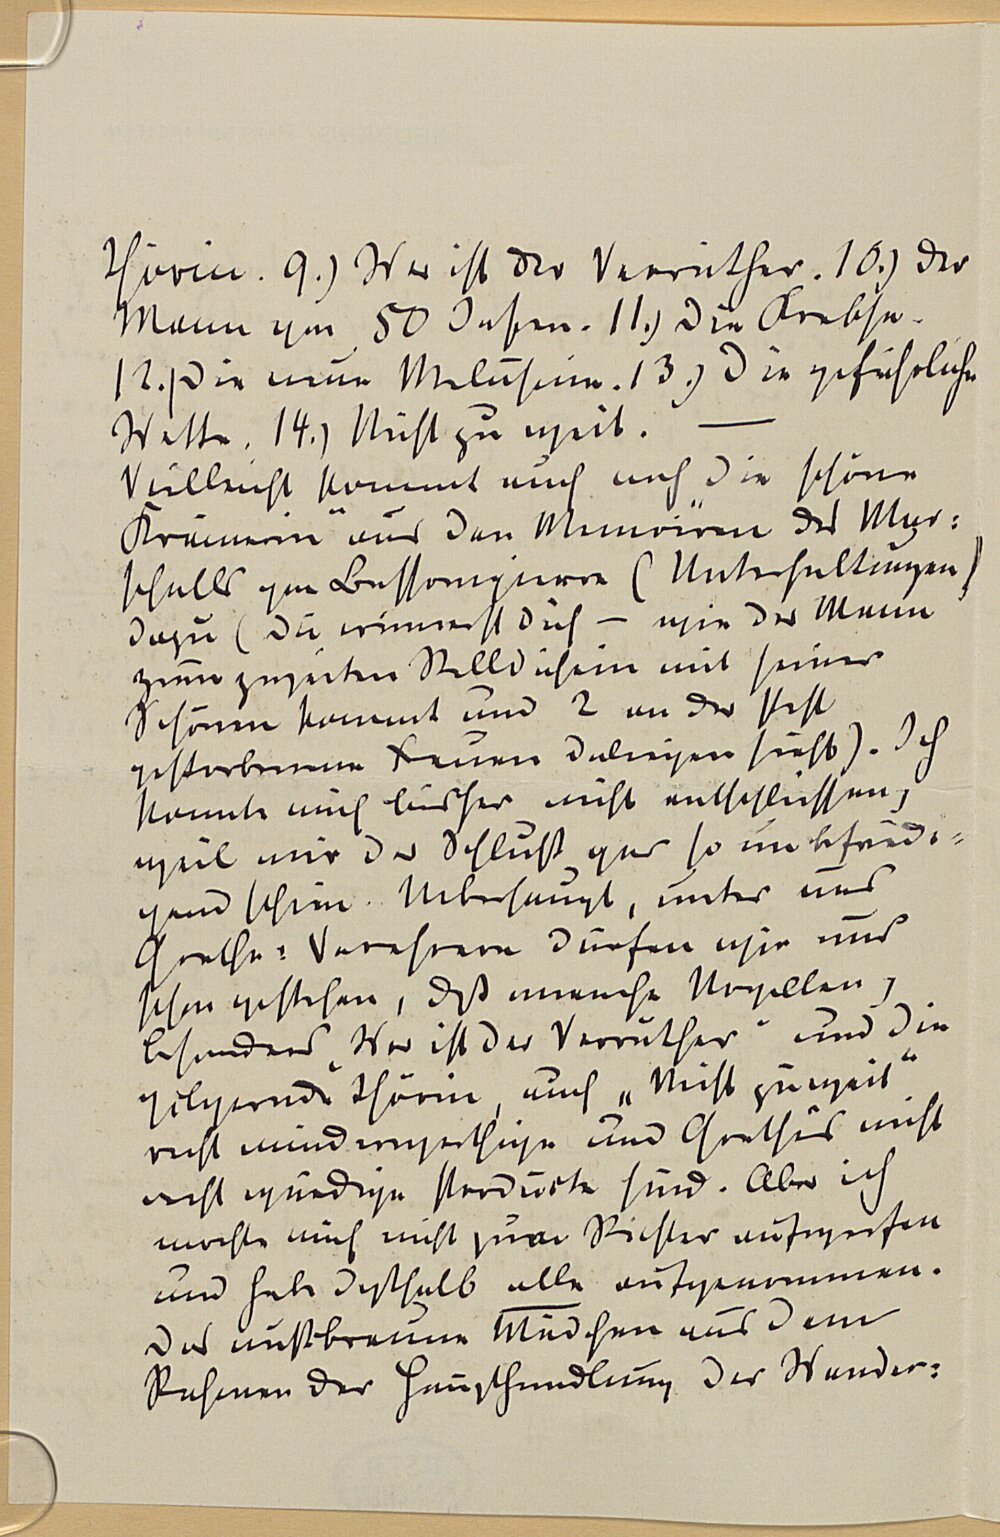 Thörin. 9.) Wer ist der Verräther. 10.) Der
Mann von 50 Jahren. 11.) Die Krebse.
12.) Die neue Melusine. 13.) Die gefährliche
Wette. 14.) Nicht zu weit. —
Vielleicht kommt auch noch die schöne
Krämerin“ aus den „Memoiren des Mar=
schalls von Bassompierre (Unterhaltungen)
dazu (Du erinnerst Dich – wie der Mann
zum zweiten Stelldichein mit seiner
Schönen kommt und 2 an der Pest
gestorbene Frauen daliegen sieht). Ich
konnte mich bisher nicht entschliessen,
weil mir der Schluß gar so unbefriedi=
gend schien. Ueberhaupt, unter uns
Goethe=Verehrern dürfen wir uns
schon gestehen, daß manche Novellen,
besonders „Wer ist der Verräther“ und die
pilgernde Thörin, auch „Nicht zu weit“
recht minderwerthige und Goethes nicht
recht würdige Produkte sind. Aber ich
mochte mich nicht zum Richter aufwerfen
und habe deßhalb alle aufgenommen.
Das nußbraune Mädchen aus dem
Rahmen der Haupthandlung der Wander=